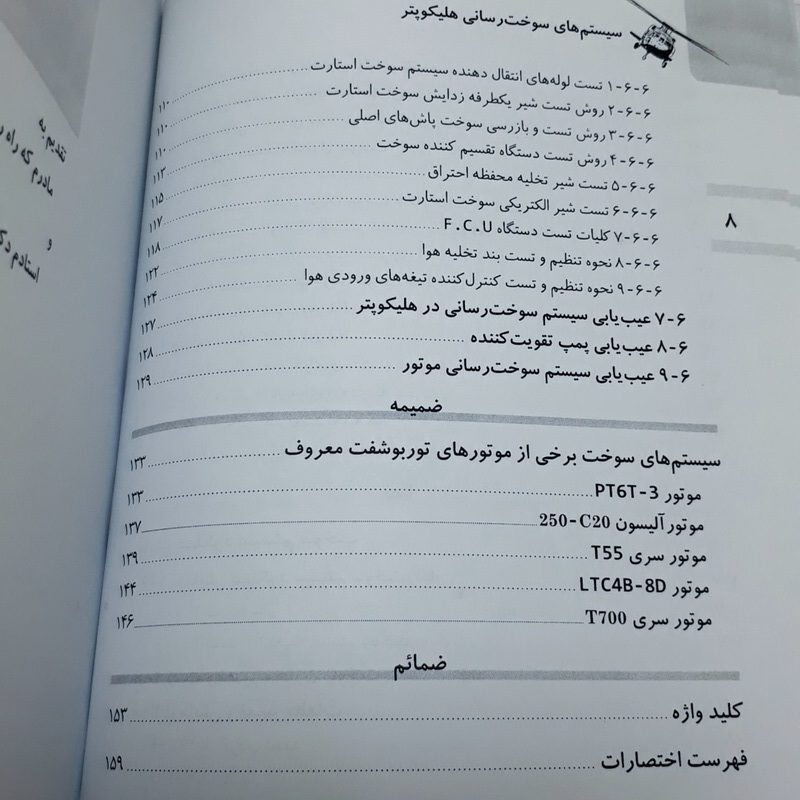 سیستم‌های سوخت‌رسانی هلیکوپتر
۸
۶-۶-۱ تست لوله‌های انتقال دهنده سیستم سوخت استارت ........ ۱۱۰
۶-۶-۲ روش تست شیر یکطرفه زدایش سوخت استارت ........ ۱۱۰
۶-۶-۳ روش تست و بازرسی سوخت پاش‌های اصلی ........ ۱۱۰
۶-۶-۴ روش تست دستگاه تقسیم کننده سوخت ........ ۱۱۳
۶-۶-۵ تست شیر تخلیه محفظه احتراق ........ ۱۱۵
۶-۶-۶ تست شیر الکتریکی سوخت استارت ........ ۱۱۷
۶-۶-۷ کلیات تست دستگاه F.C.U ........ ۱۱۸
۶-۶-۸ نحوه تنظیم و تست بند تخلیه هوا ........ ۱۲۲
۶-۶-۹ نحوه تنظیم و تست کنترل‌کننده تیغه‌های ورودی هوا ........ ۱۲۴
۶-۷ عیب‌یابی سیستم سوخت‌رسانی در هلیکوپتر ........ ۱۲۷
۶-۸ عیب‌یابی پمپ تقویت‌کننده ........ ۱۲۸
۶-۹ عیب‌یابی سیستم سوخت‌رسانی موتور ........ ۱۲۹
ضمیمه
سیستم‌های سوخت برخی از موتورهای توربوشفت معروف ........ ۱۳۳
موتور PT6T-3 ........ ۱۳۳
موتور آلیسون 250-C20 ........ ۱۳۷
موتور سری T55 ........ ۱۳۹
موتور LTC4B-8D ........ ۱۴۴
موتور سری T700 ........ ۱۴۶
ضمائم
کلید واژه ........ ۱۵۳
فهرست اختصارات ........ ۱۵۹
تقدیم به
مادرم که راه
و
استادم